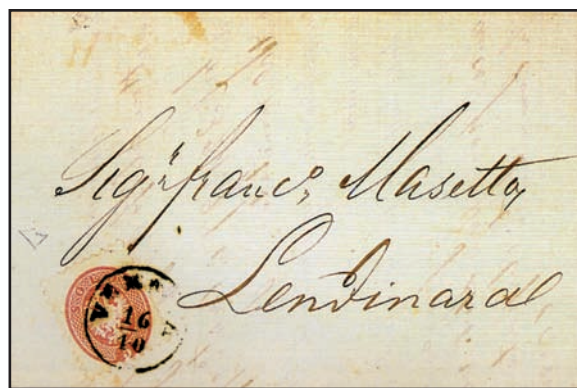 Sigr Franco Masetto
Lendinara
16
10